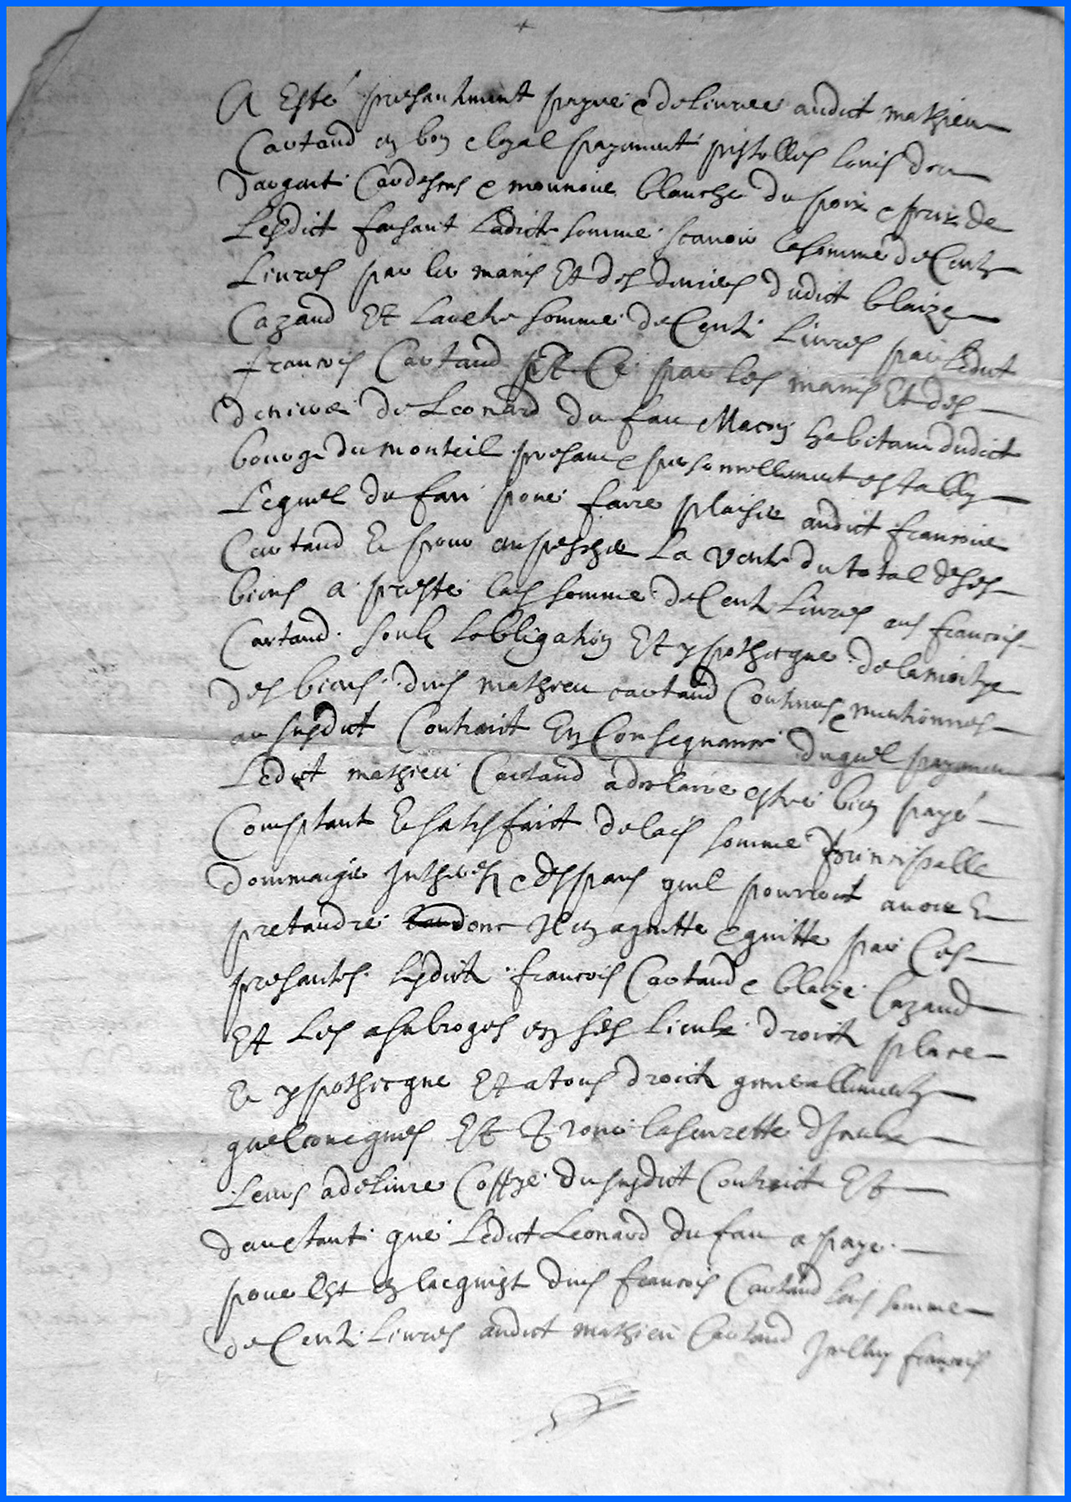 A Esté presantement payé e delivree audict mathieu
Cartaud en bon e loyal payement pistolles louis dor
dargant Cardesens e monnoie blanche du poix e prix de
Lesdict faisant ladicte somme scavoir la somme de Cent
Livres par les mains Et des deniers dudict blaize
Cazaud Et lautre somme de Cent Livres par Ledict
francois Cartaud Et Ce par les mains Et des
deniers de Leonard du fau Macon habitant dudict
bourg du monteil presant e personnellement estably
Lequel du fau pour faire plaisir audict francois
Cartaud E pour empescher La vente du total de ses
biens a presté lad somme de Cent Livres aud francois
Cartaud soubz Lobligation Et ypothecque de la moitye
des biens dud mathieu cartaud Contenus e mentionnes
au susdict Contraict En Consequance duquel payement
Ledict mathieu Cartaud a declaire estre bien payé
Comptant E satisfaict de lad somme principalle
dommaige Intherestz e despans quil pourroit avoir E
pretandre donc Il en aquitte e quitte par Ces
presantes Lesdictz francois Cartaud e blaize Cazaud
Et Les asubroges en ses Lieux droictz place
E ypothecque Et a tous droictz generallement
quelconcques Et pour la seurette
Leur a delivre Coppye du susdict Contraict Et
dauctant que Ledict Leonard du fau a paye
pour Et en lacquist dud francois Cartaud lad somme
de Cent Livres audict mathieu Cartaud Icelluy francois